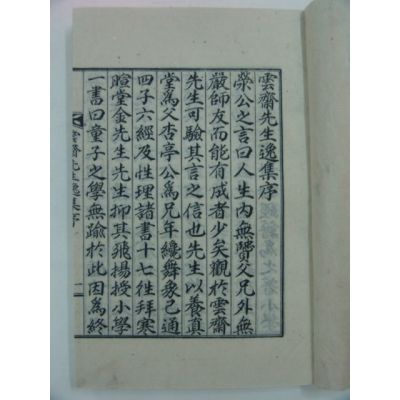 雲齋先生逸集序
滎公之言曰人生內無賢父兄外無
嚴師友而能有成者少矣觀於雲齋
先生可驗其言之信也先生以養眞
堂爲父杏亭公爲兄年纔舞象已通
四子六經及性理諸書十七徃拜寒
暄堂金先生先生抑其飛揚授小學
一書曰童子之學無踰於此因爲終
雲齋先生逸集序
一